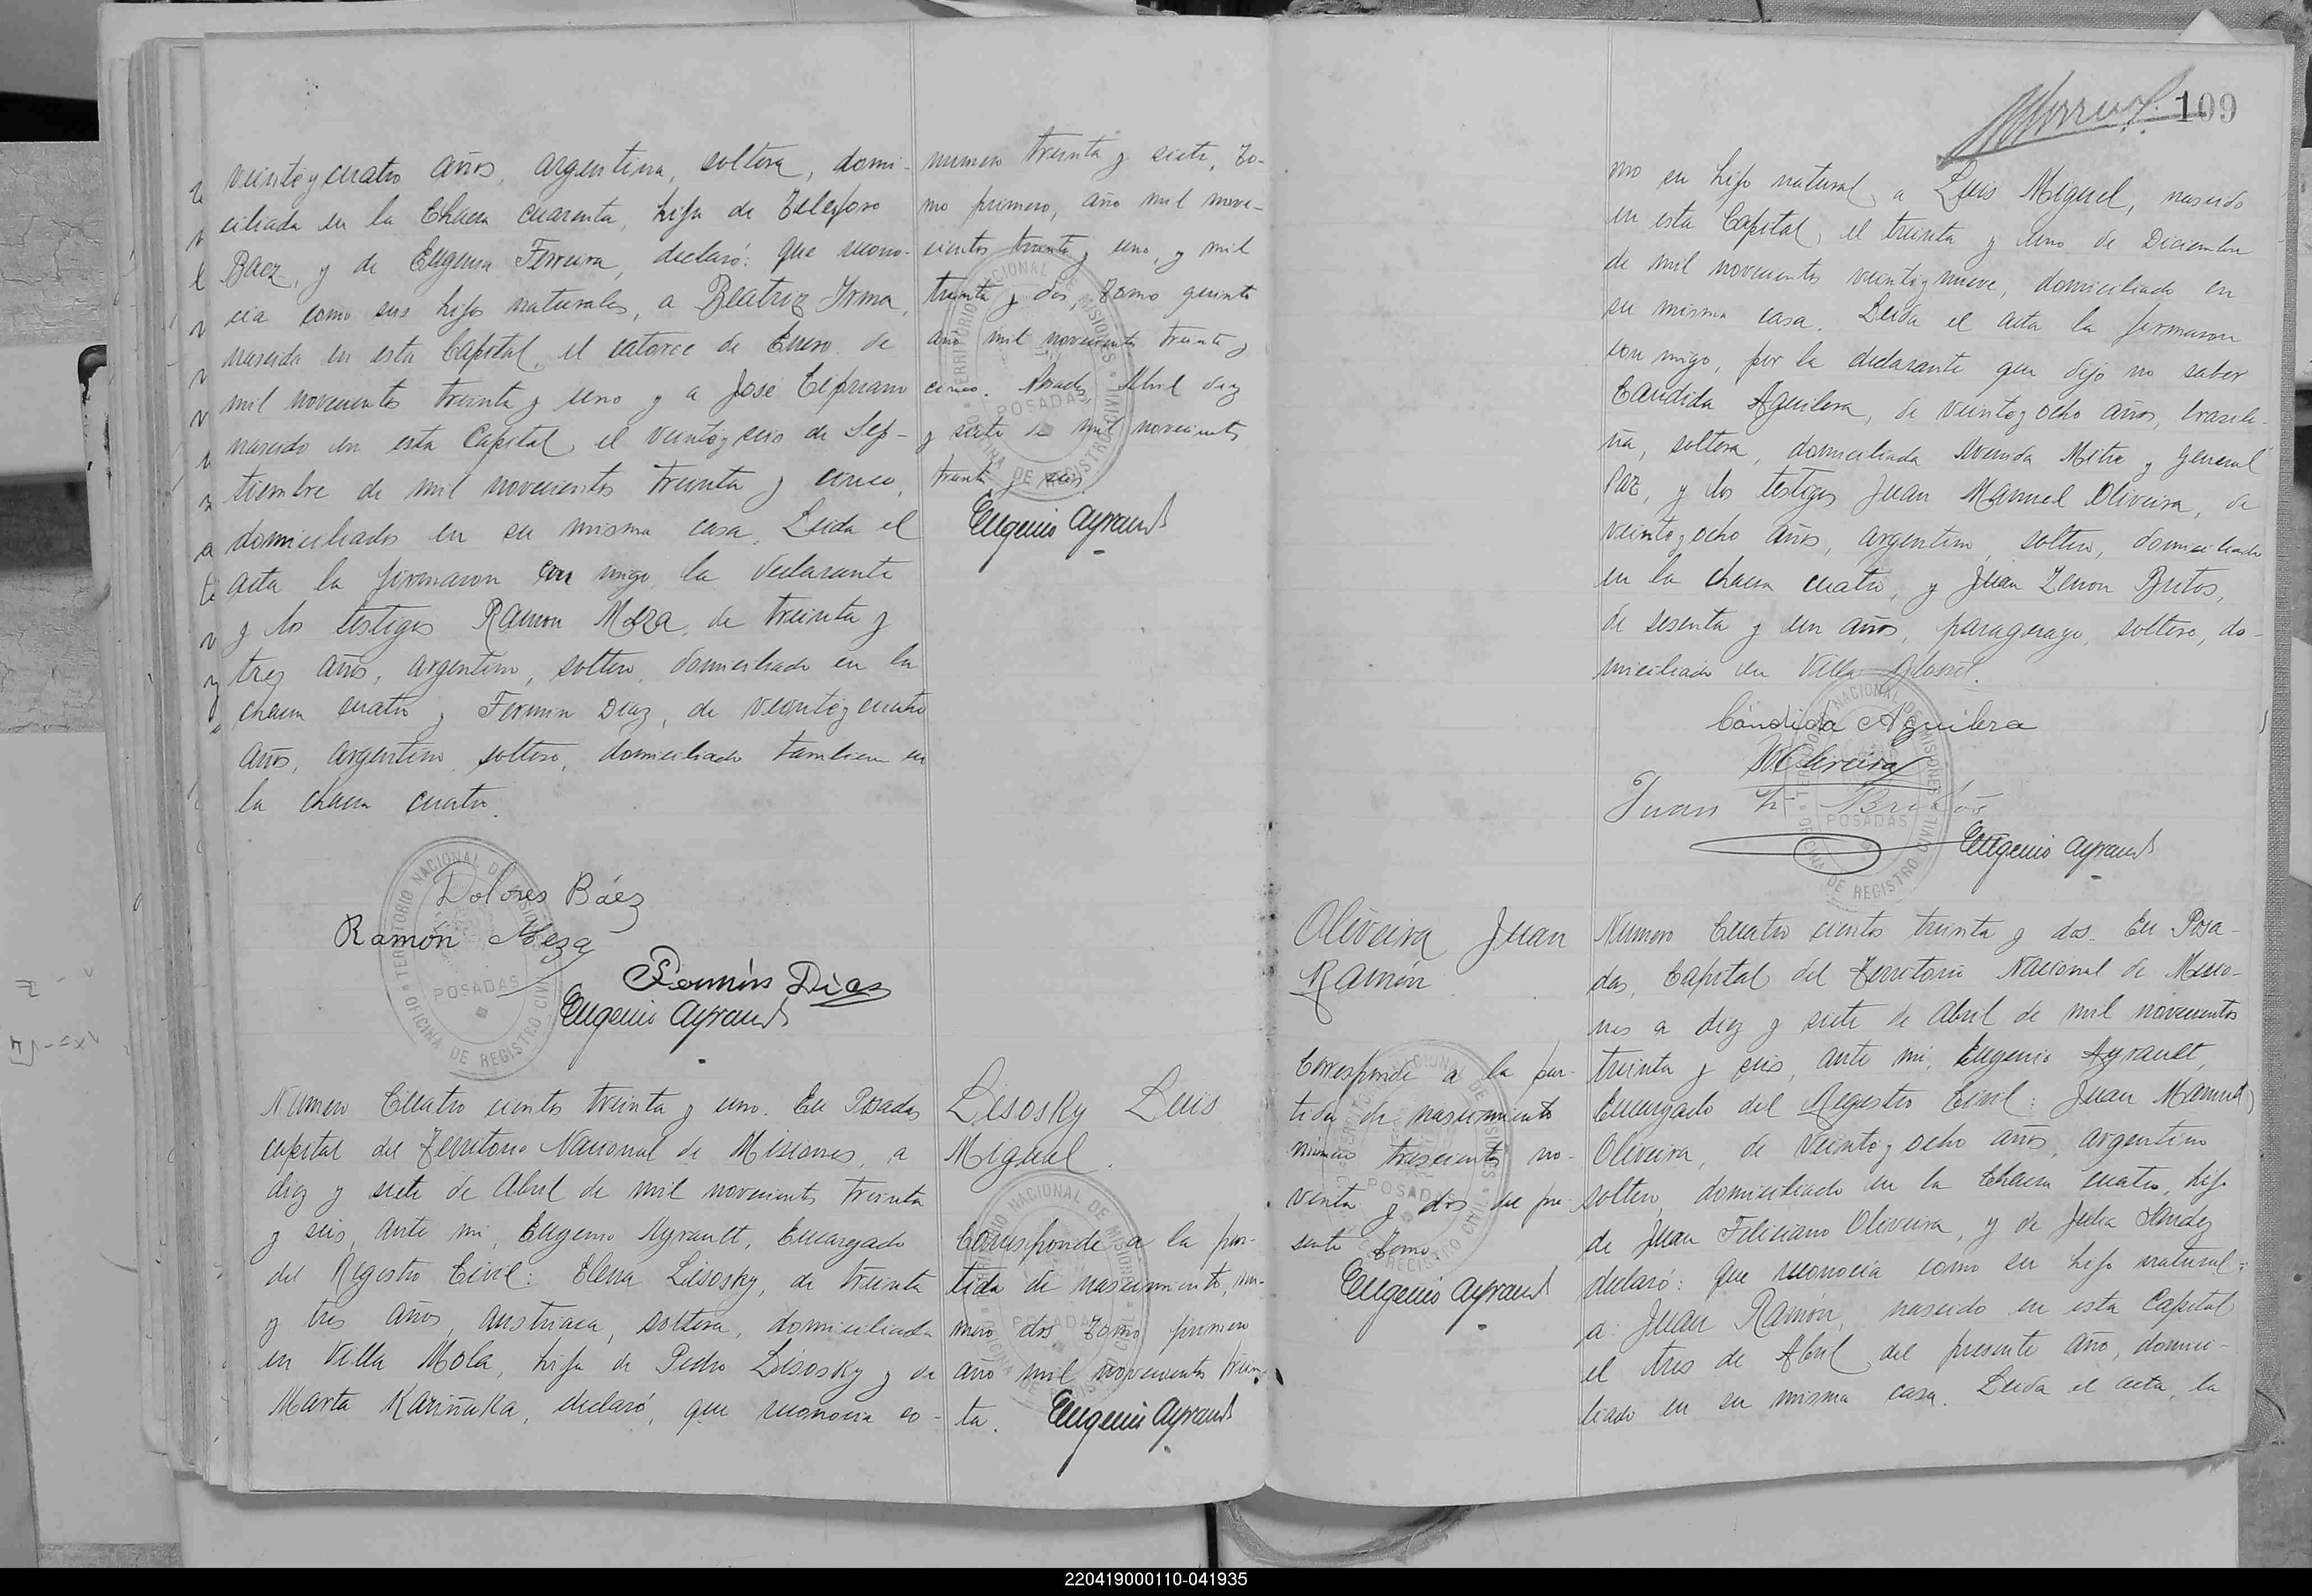 veinte y cuatro años, argentina, soltera, domi-
ciliada en la Chacra cuarenta, hija de Telesforo
Báez, y de Eugenia Ferreira, declaró: que recono-
cia como sus hijos naturales, a Beatriz Irma,
nascida en esta Capital, el catorce de Enero de
mil novecientos treinta y uno y a José Cipriano
nascido en esta Capital, el veinte y seis de Sep-
tiembre de mil novecientos treinta y cinco,
domiciliados en su misma casa. Leida el
acta la firmaron con migo, la declarante
y los testigos Ramon Meza, de treinta y
tres años, argentino, soltero, domiciliado en la
chacra cuatro y Fermin Diaz, de veinte y cuatro
años, argentino, soltero, domiciliado tambien en
la chacra cuatro.
Dolores Báez
Ramón Meza
Fermín Dias
Eugenio Ayrault
numero treinta y siete, To-
mo primero, año mil nove-
cientos treinta y uno, y mil
treinta y dos, Tomo quinto
año mil novecientos treinta y
cinco. Posadas, Abril diez
y siete de mil novecientos
treinta y seis.
Eugenio Ayrault
Numero Cuatro cientos treinta y uno. En Posadas
capital del Territorio Nacional de Misiones, a
diez y siete de Abril de mil novecientos treinta
y seis, ante mi, Eugenio Ayrault, Encargado
del Registro Civil: Elena Lisosky, de treinta
y tres años, austriaca, soltera, domiciliada
en Villa Mola, hija de Pedro Lisosky y de
Marta Kariñaka, declaró, que reconocia co-
Lisosky Luis
Miguel.
Corresponde a la par-
tida de nascimiento, nu-
mero dos Tomo primero
año mil novecientos trein-
ta. Eugenio Ayrault
109
mo su hijo natural, a Luis Miguel, nascido
en esta Capital, el treinta y uno de Diciembre
de mil novecientos veinte y nueve, domiciliado en
su misma casa. Leida el acta la firmaron
con migo, por la declarante que dijo no saber
Candida Aguilera, de veinte y ocho años, brasile-
ña, soltera, domiciliada Avenida Mitre y General
Paz, y los testigos Juan Manuel Oliveira, de
veinte y ocho años, argentino, soltero, domiciliado
en la chacra cuatro, y Juan Zenon Britos,
de sesenta y un años, paraguayo, soltero, do-
miciliado en Villa
Cándida Aguilera
JMOliveira
Juan Z Britos
Eugenio Ayrault
Oliveira Juan
Ramón
Corresponde a la par-
tida de nascimiento
número trescientos no-
venta y dos del pre-
sente Tomo
Eugenio Ayrault
Numero Cuatro cientos treinta y dos. En Posa-
das, Capital del Territorio Nacional de Misio-
nes a diez y siete de Abril de mil novecientos
treinta y seis, ante mi, Eugenio Ayrault,
Encargado del Registro Civil: Juan Manuel
Oliveira, de veinte y ocho años, argentino
soltero, domiciliado en la Chacra cuatro, hijo
de Juan Feliciano Oliveira, y de Julia
declaró: que reconocia como su hijo natural:
a: Juan Ramón, nascido en esta Capital
el tres de Abril del presente año, domici-
liado en su misma casa. Leida el acta, la
TERRITORIO NACIONAL DE MISIONES
POSADAS
OFICINA DE REGISTRO CIVIL
220419000110-041935